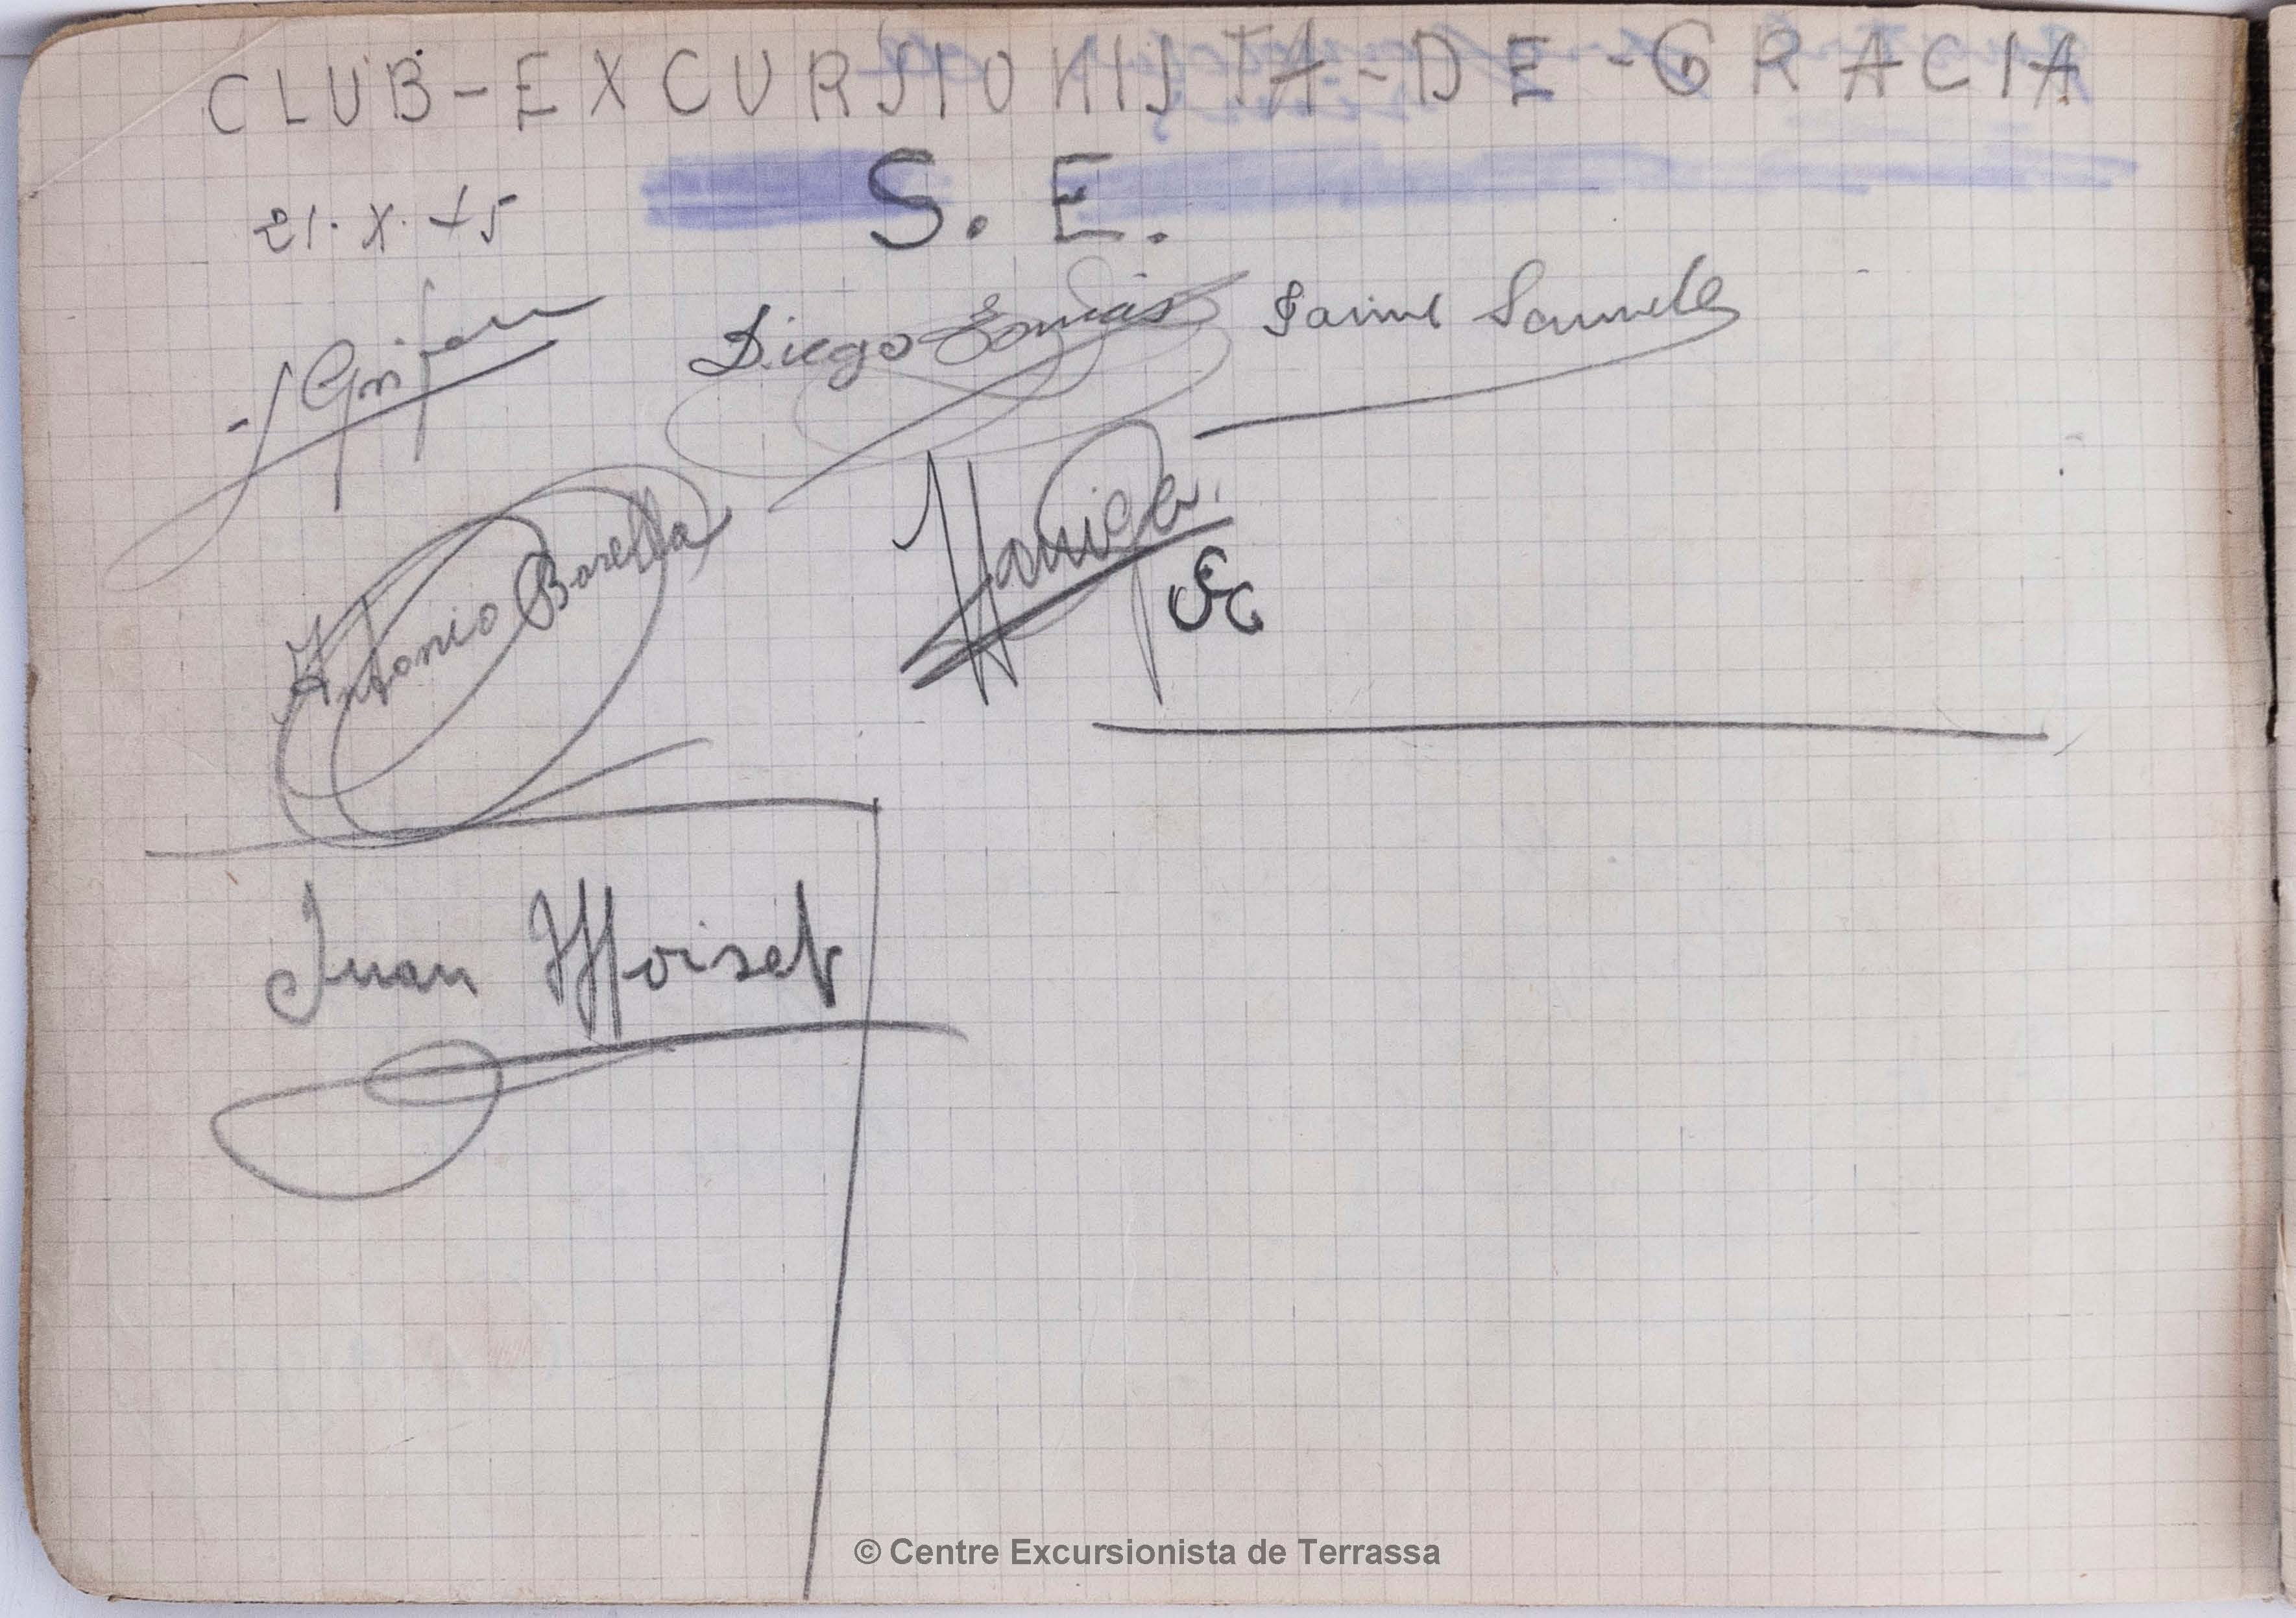 CLUB-EXCURSIONISTA-DE-GRACIA
S. E.
21. X. 45
Diego Jaime
Antonio Borella
Juan Moiset
© Centre Excursionista de Terrassa